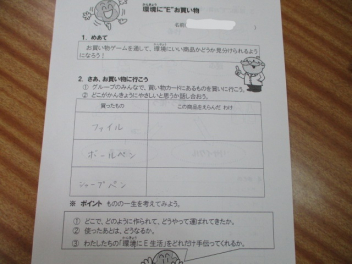 環境に"E"お買い物
名前
1. めあて
お買い物ゲームを通して、環境にいい商品かどうか見分けられるよう
になろう！
2. さあ、お買い物に行こう
① グループのみんなで、買い物カードにあるものを買いに行こう。
② どこがかんきょうにやさしいと思うか話し合おう。
買ったもの この商品をえらんだ わけ
ファイル
ボールペン
シャープペン
※ ポイント ものの一生を考えてみよう。
① どこで、どのように作られてきて、どうやって運ばれてきたか。
② 使ったあとは、どうなるか。
③ わたしたちの「環境にE 生活」をどれだけ手伝ってくれるか。